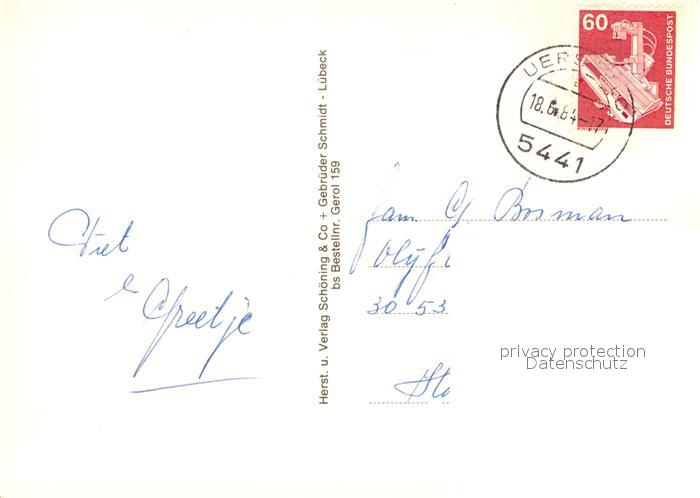 60
DEUTSCHE BUNDESPOST
UERS
18.6.84-17
5441
Herst. u. Verlag Schöning & Co + Gebrüder Schmidt - Lübeck
bs Bestellnr. Gerol 159
Piet
&
Greetje
fam. G. Bosman
30 53
privacy protection
Datenschutz